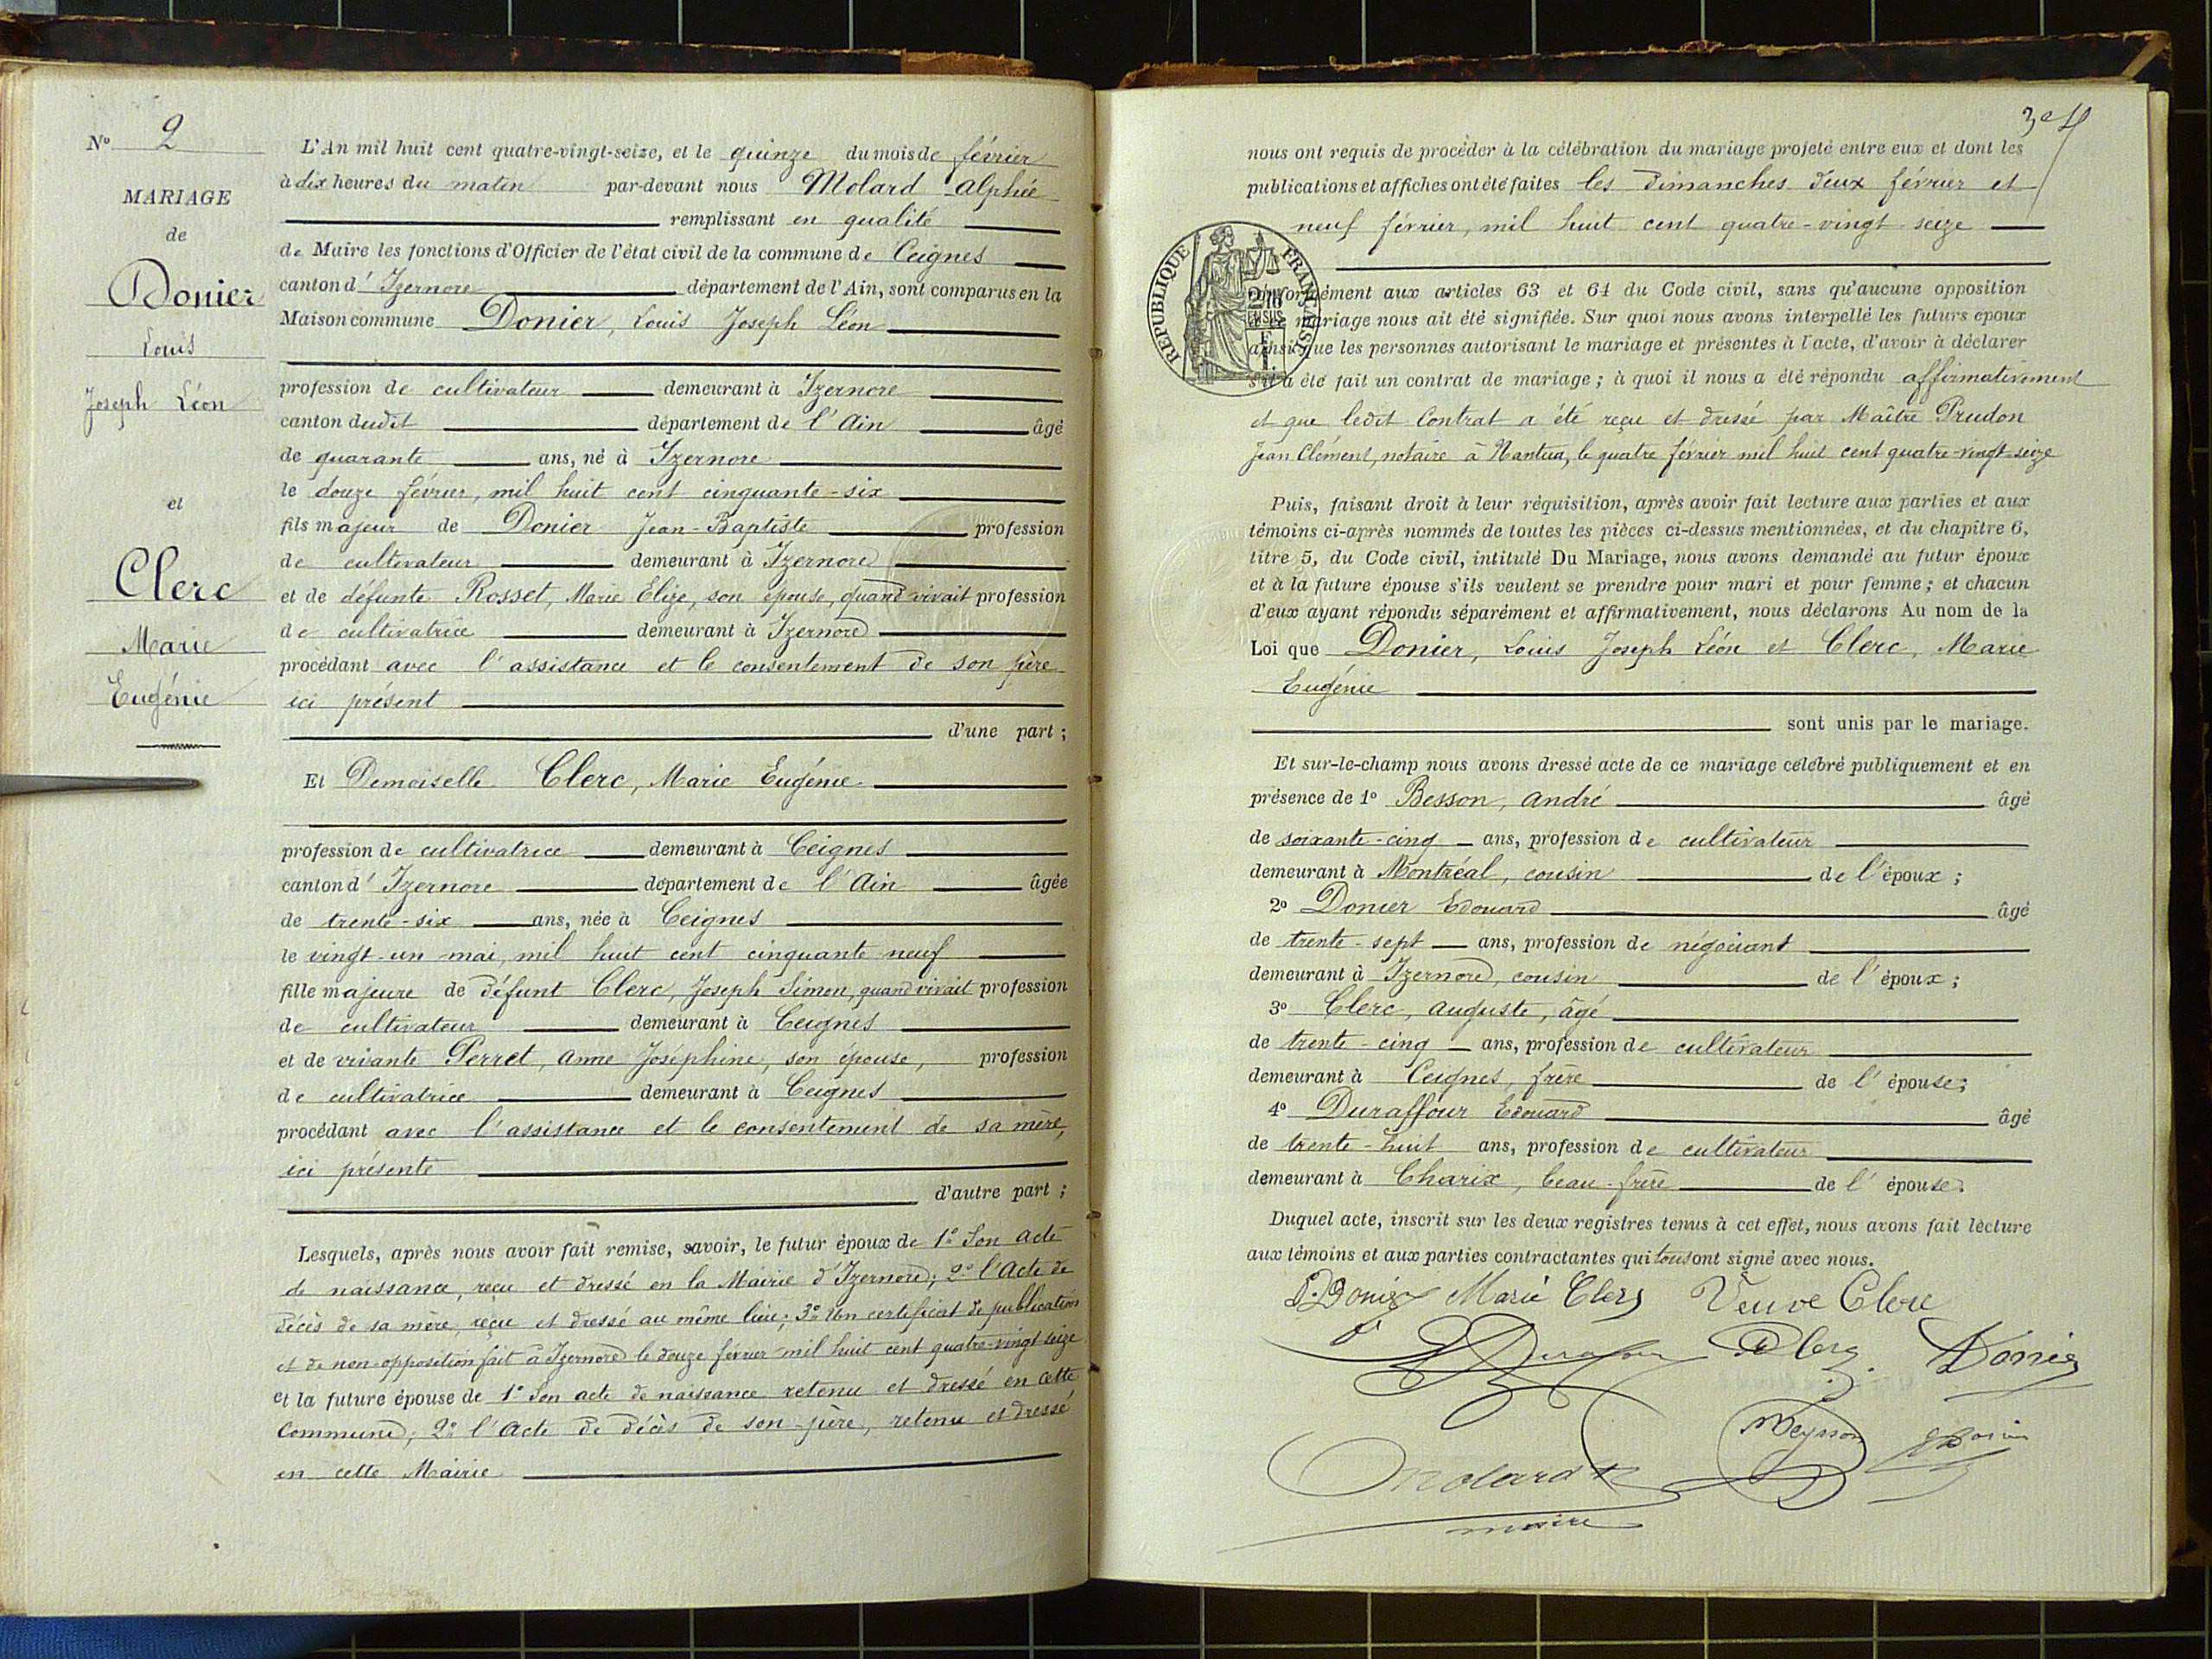 N° 2
MARIAGE
de
Donier
Louis
Joseph Léon
et
Clerc
Marie
Eugénie
L'An mil huit cent quatre-vingt-seize, et le quinze du mois de février
à dix heures du matin par-devant nous Molard Alphée
remplissant en qualité
de Maire les fonctions d'Officier de l'état civil de la commune de Ceignes
canton d'Izernore département de l'Ain, sont comparus en la
Maison commune Donier, Louis Joseph Léon
profession de cultivateur demeurant à Izernore
canton dudit département de l'Ain âgé
de quarante ans, né à Izernore
le douze février, mil huit cent cinquante-six
fils majeur de Donier Jean-Baptiste profession
de cultivateur demeurant à Izernore
et de défunte Rosset, Marie Elize, son épouse, quand vivait profession
de cultivatrice demeurant à Izernore
procédant avec l'assistance et le consentement de son père
ici présent
d'une part ;
Et Demoiselle Clerc, Marie Eugénie
profession de cultivatrice demeurant à Ceignes
canton d'Izernore département de l'Ain âgée
de trente-six ans, née à Ceignes
le vingt-un mai, mil huit cent cinquante neuf
fille majeure de défunt Clerc, Joseph Simon, quand vivait profession
de cultivateur demeurant à Ceignes
et de vivante Perret, Anne Joséphine, son épouse, profession
de cultivatrice demeurant à Ceignes
procédant avec l'assistance et le consentement de sa mère,
ici présente
d'autre part ;
Lesquels, après nous avoir fait remise, savoir, le futur époux de 1° Son acte
de naissance, reçu et dressé en la Mairie d'Izernore; 2° l'Acte de
décès de sa mère, reçu et dressé au même lieu; 3° Un certificat de publication
et de non-opposition fait à Izernore le douze février mil huit cent quatre-vingt seize
et la future épouse de 1° Son acte de naissance retenu et dressé en cette
Commune; 2° l'Acte de décès de son père, retenu et dressé
en cette Mairie
nous ont requis de procéder à la célébration du mariage projeté entre eux et dont les
publications et affiches ont été faites les Dimanches deux février et
neuf février, mil huit cent quatre-vingt-seize
REPUBLIQUE FRANÇAISE
Conformément aux articles 63 et 64 du Code civil, sans qu'aucune opposition
mariage nous ait été signifiée. Sur quoi nous avons interpellé les futurs époux
ainsi que les personnes autorisant le mariage et présentes à l'acte, d'avoir à déclarer
s'il a été fait un contrat de mariage ; à quoi il nous a été répondu affirmativement
et que ledit Contrat a été reçu et dressé par Maître Prudon
Jean Clément, notaire à Nantua, le quatre février mil huit cent quatre-vingt-seize
Puis, faisant droit à leur réquisition, après avoir fait lecture aux parties et aux
témoins ci-après nommés de toutes les pièces ci-dessus mentionnées, et du chapitre 6,
titre 5, du Code civil, intitulé Du Mariage, nous avons demandé au futur époux
et à la future épouse s'ils veulent se prendre pour mari et pour femme ; et chacun
d'eux ayant répondu séparément et affirmativement, nous déclarons Au nom de la
Loi que Donier, Louis Joseph Léon et Clerc, Marie
Eugénie
sont unis par le mariage.
Et sur-le-champ nous avons dressé acte de ce mariage célébré publiquement et en
présence de 1° Besson, André âgé
de soixante-cinq ans, profession de cultivateur
demeurant à Montréal, cousin de l'époux ;
2° Donier Edouard âgé
de trente-sept ans, profession de négociant
demeurant à Izernore, cousin de l'époux ;
3° Clerc, Auguste, âgé
de trente-cinq ans, profession de cultivateur
demeurant à Ceignes, frère de l'épouse;
4° Duraffour Edouard âgé
de trente-huit ans, profession de cultivateur
demeurant à Charix, beau-frère de l'épouse.
Duquel acte, inscrit sur les deux registres tenus à cet effet, nous avons fait lecture
aux témoins et aux parties contractantes qui tous ont signé avec nous.
Donier Marie Clerc Veuve Clerc
Clerc Donier
Molard
maire